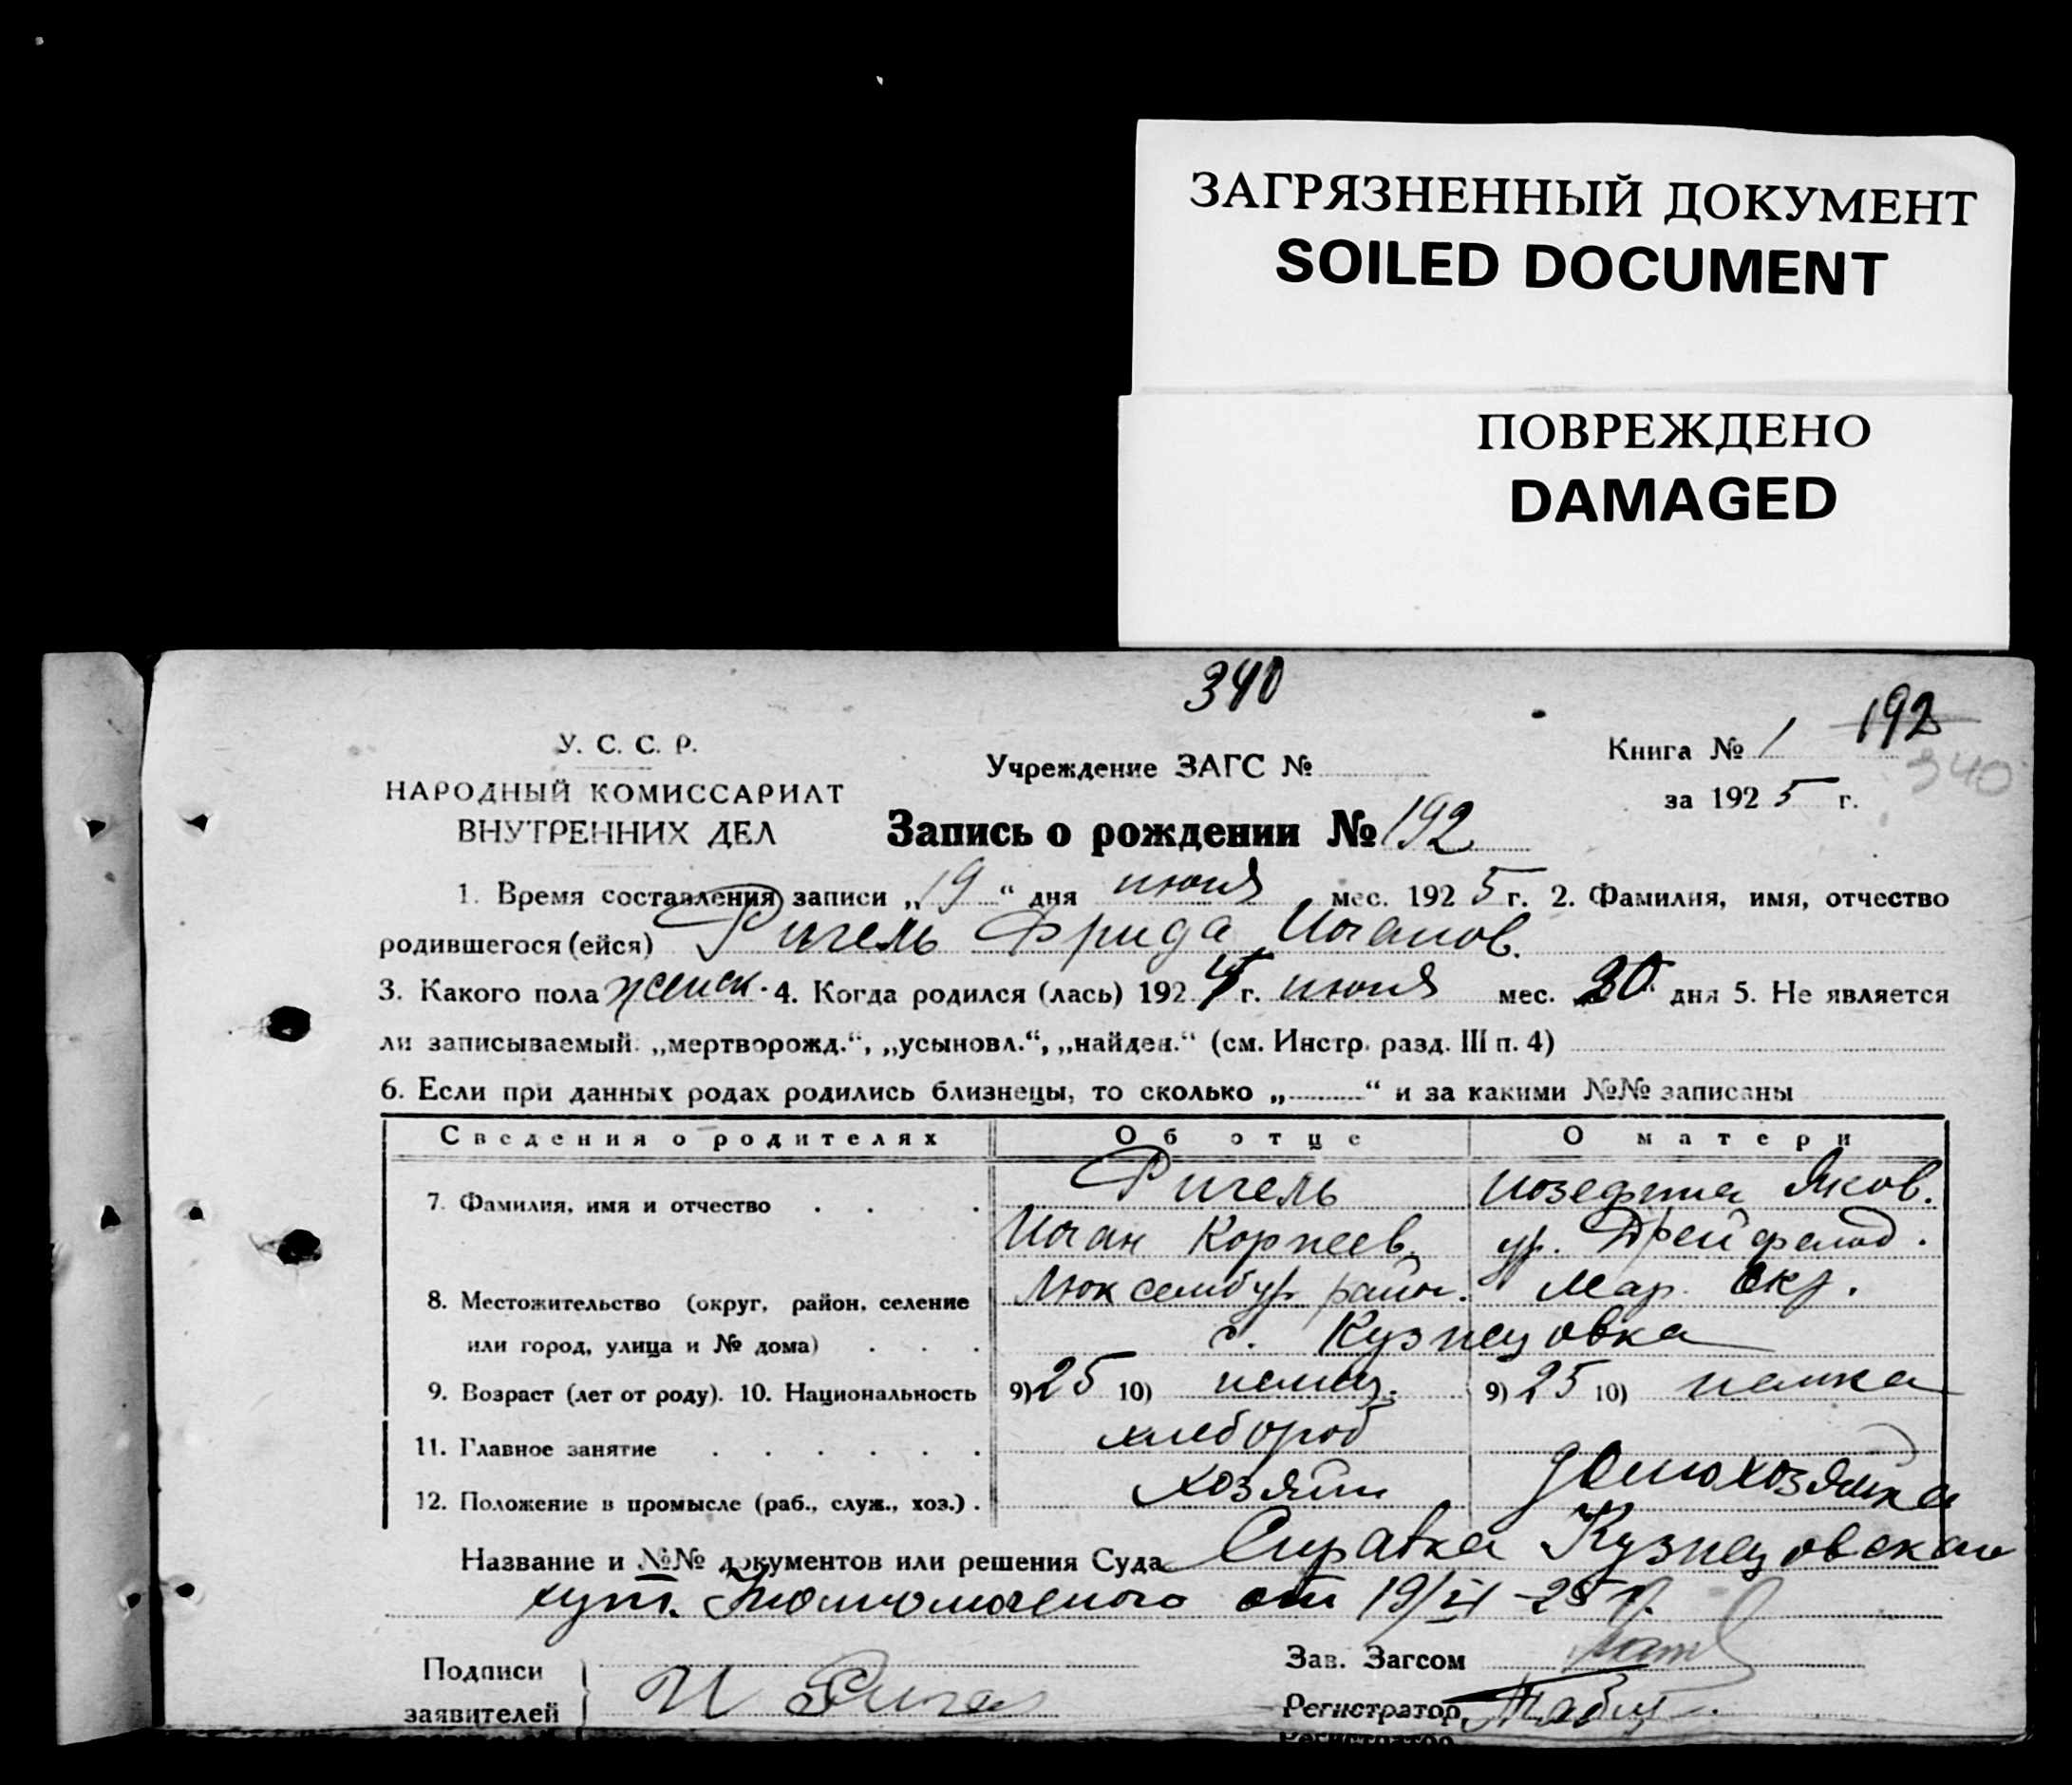 ЗАГРЯЗНЕННЫЙ ДОКУМЕНТ
SOILED DOCUMENT
ПОВРЕЖДЕНО
DAMAGED
340
192
У. С. С. Р.
НАРОДНЫЙ КОМИССАРИАТ
ВНУТРЕННИХ ДЕЛ
Учреждение ЗАГС №
Книга № 1
340
за 1925 г.
Запись о рождении № 192
1. Время составления записи „19“ дня июня мес. 1925 г. 2. Фамилия, имя, отчество
родившегося (ейся) Ригель Фрида Иоганов.
3. Какого пола женск. 4. Когда родился (лась) 192 г. июня мес. 20 дня 5. Не является
ли записываемый: „мертворожд.“, „усыновл.“, „найден.“ (см. Инстр. разд. III п. 4)
6. Если при данных родах родились близнецы, то сколько „ “ и за какими №№ записаны
Сведения о родителях Об отце О матери
7. Фамилия, имя и отчество Ригель Иозефина Яков.
Иоган Корнеев. ур.
8. Местожительство (округ, район, селение Люксембур. район. Мар. Окр.
или город, улица и № дома) с. Кузнецовка
9. Возраст (лет от роду). 10. Национальность 9) 25 10) немец. 9) 25 10) немка
11. Главное занятие хлебороб
12. Положение в промысле (раб., служ., хоз.) хозяин домохозяйка
Название и №№ документов или решения Суда Справка Кузнецовского
хут. от 19/VI -25 г.
Подписи
заявителей И Ригель
Зав. Загсом
Регистратор
Регистратор